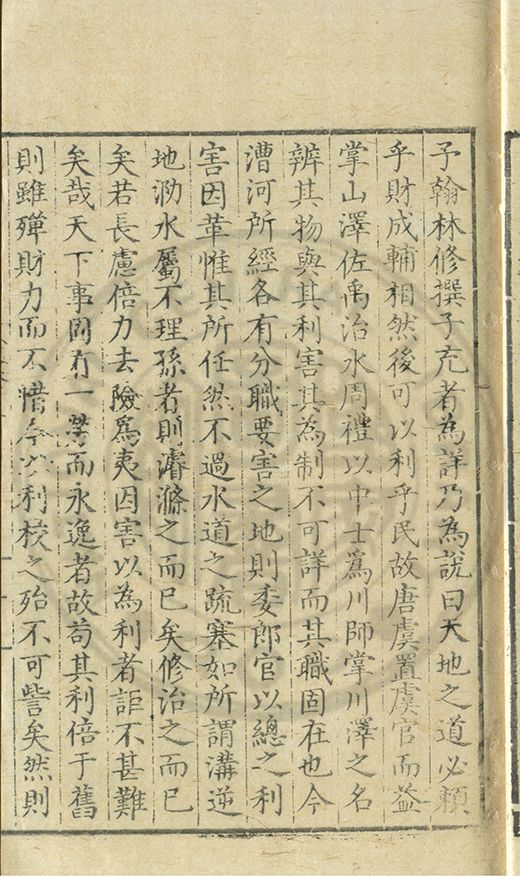 予翰林修撰子充者為詳乃為說曰天地之道必頼
乎財成輔相然後可以利乎民故唐虞置虞官而益
掌山澤佐禹治水周禮以中士為川師掌川澤之名
辨其物與其利害其為制不可詳而其職固在也今
漕河所經各有分職要害之地則委郎官以總之利
害因革惟其所任然不過水道之疏塞如所謂溝逆
地泐水屬不理孫者則濬滌之而已矣修治之而已
矣若長慮倍力去險為夷因害以為利者詎不甚難
矣哉天下事固有一勞而永逸者故苟其利倍于舊
則雖殫財力而不惜今以利校之殆不可訾矣然則